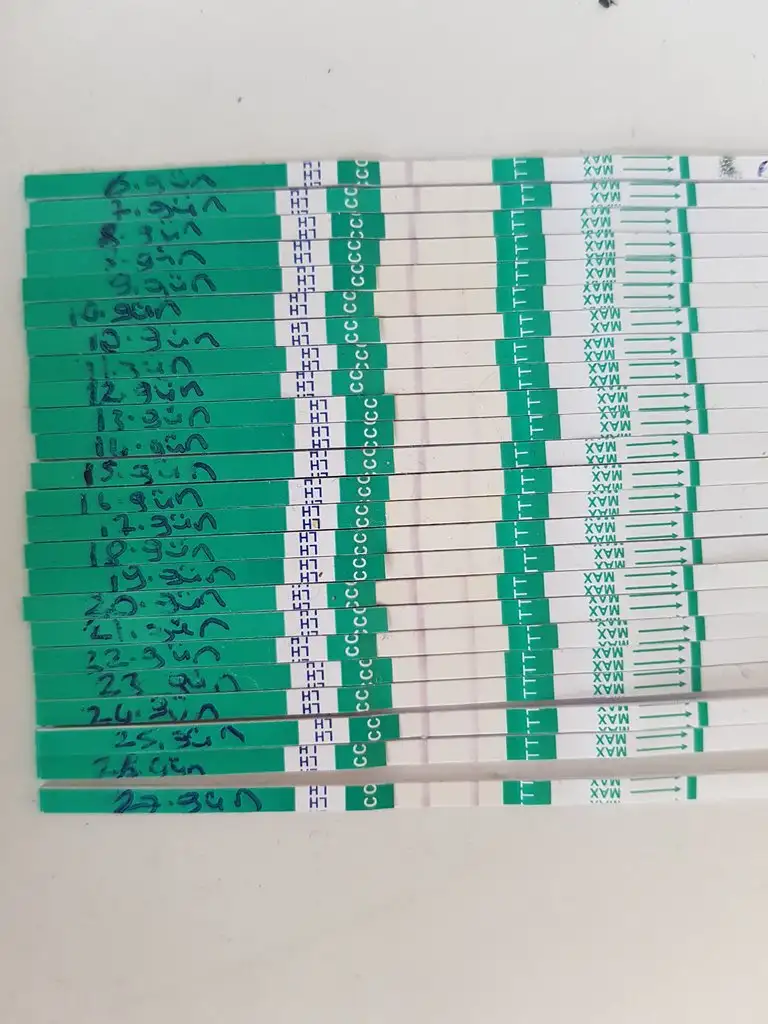 6.gün LH CC TT MAX
7.gün LH CC TT MAX
8.gün LH CC TT MAX
gün LH CC TT MAX
9.gün LH CC TT MAX
10.gün LH CC TT MAX
10.gün LH CC TT MAX
11.gün LH CC TT MAX
12.gün LH CC TT MAX
13.gün LH CC TT MAX
14.gün LH CC TT MAX
15.gün LH CC TT MAX
16.gün LH CC TT MAX
17.gün LH CC TT MAX
18.gün LH CC TT MAX
19.gün LH CC TT MAX
20.gün LH CC TT MAX
21.gün LH CC TT MAX
22.gün LH CC TT MAX
23 gün LH CC TT MAX
24.gün LH CC TT MAX
25.gün LH CC TT MAX
26.gün LH CC TT MAX
27.gün LH CC TT MAX